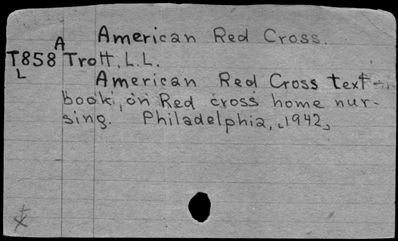 American Red Cross.
A
T858 Trott, L.L.
L
American Red Cross text-
book, on Red cross home nur-
sing. Philadelphia, 1942,